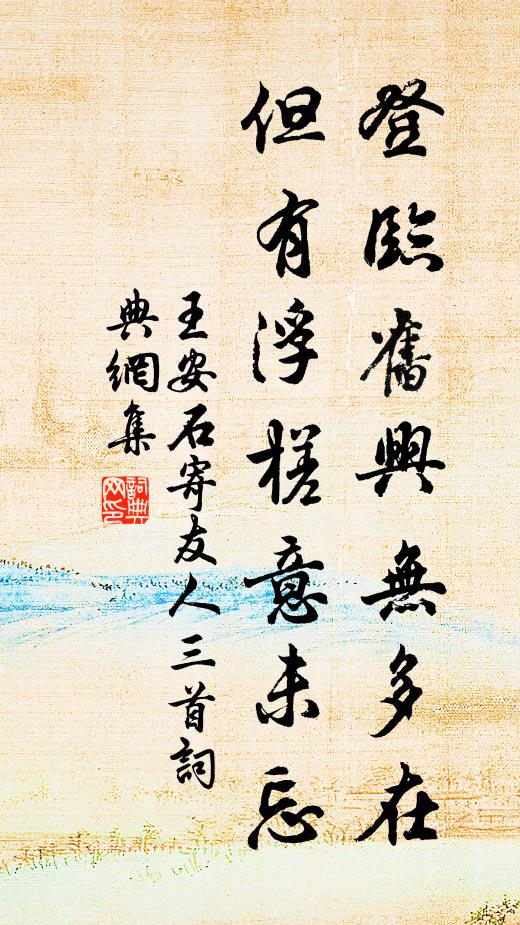 登臨舊興無多在
但有浮槎意未忘
王安石寄友人三首詞
典網集
詞典
网印